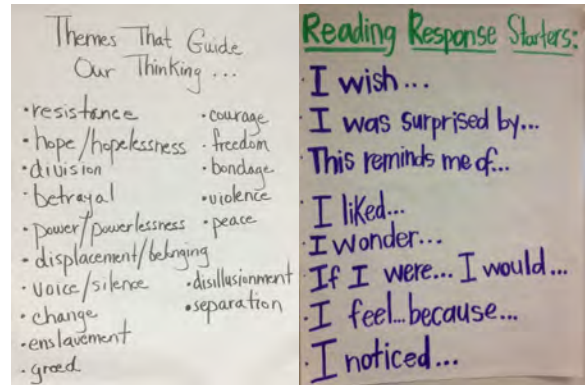 Themes That Guide
Our Thinking ...
•resistance
•hope/hopelessness
•division
•betrayal
•power/powerlessness
•displacement/belonging
•voice/silence
•change
•enslavement
•greed
•courage
•freedom
•bondage
•violence
•peace
•disillusionment
•separation
Reading Response Starters:
•I wish...
•I was surprised by...
•This reminds me of...
•I liked...
•I wonder...
•If I were... I would...
•I feel...because...
•I noticed...